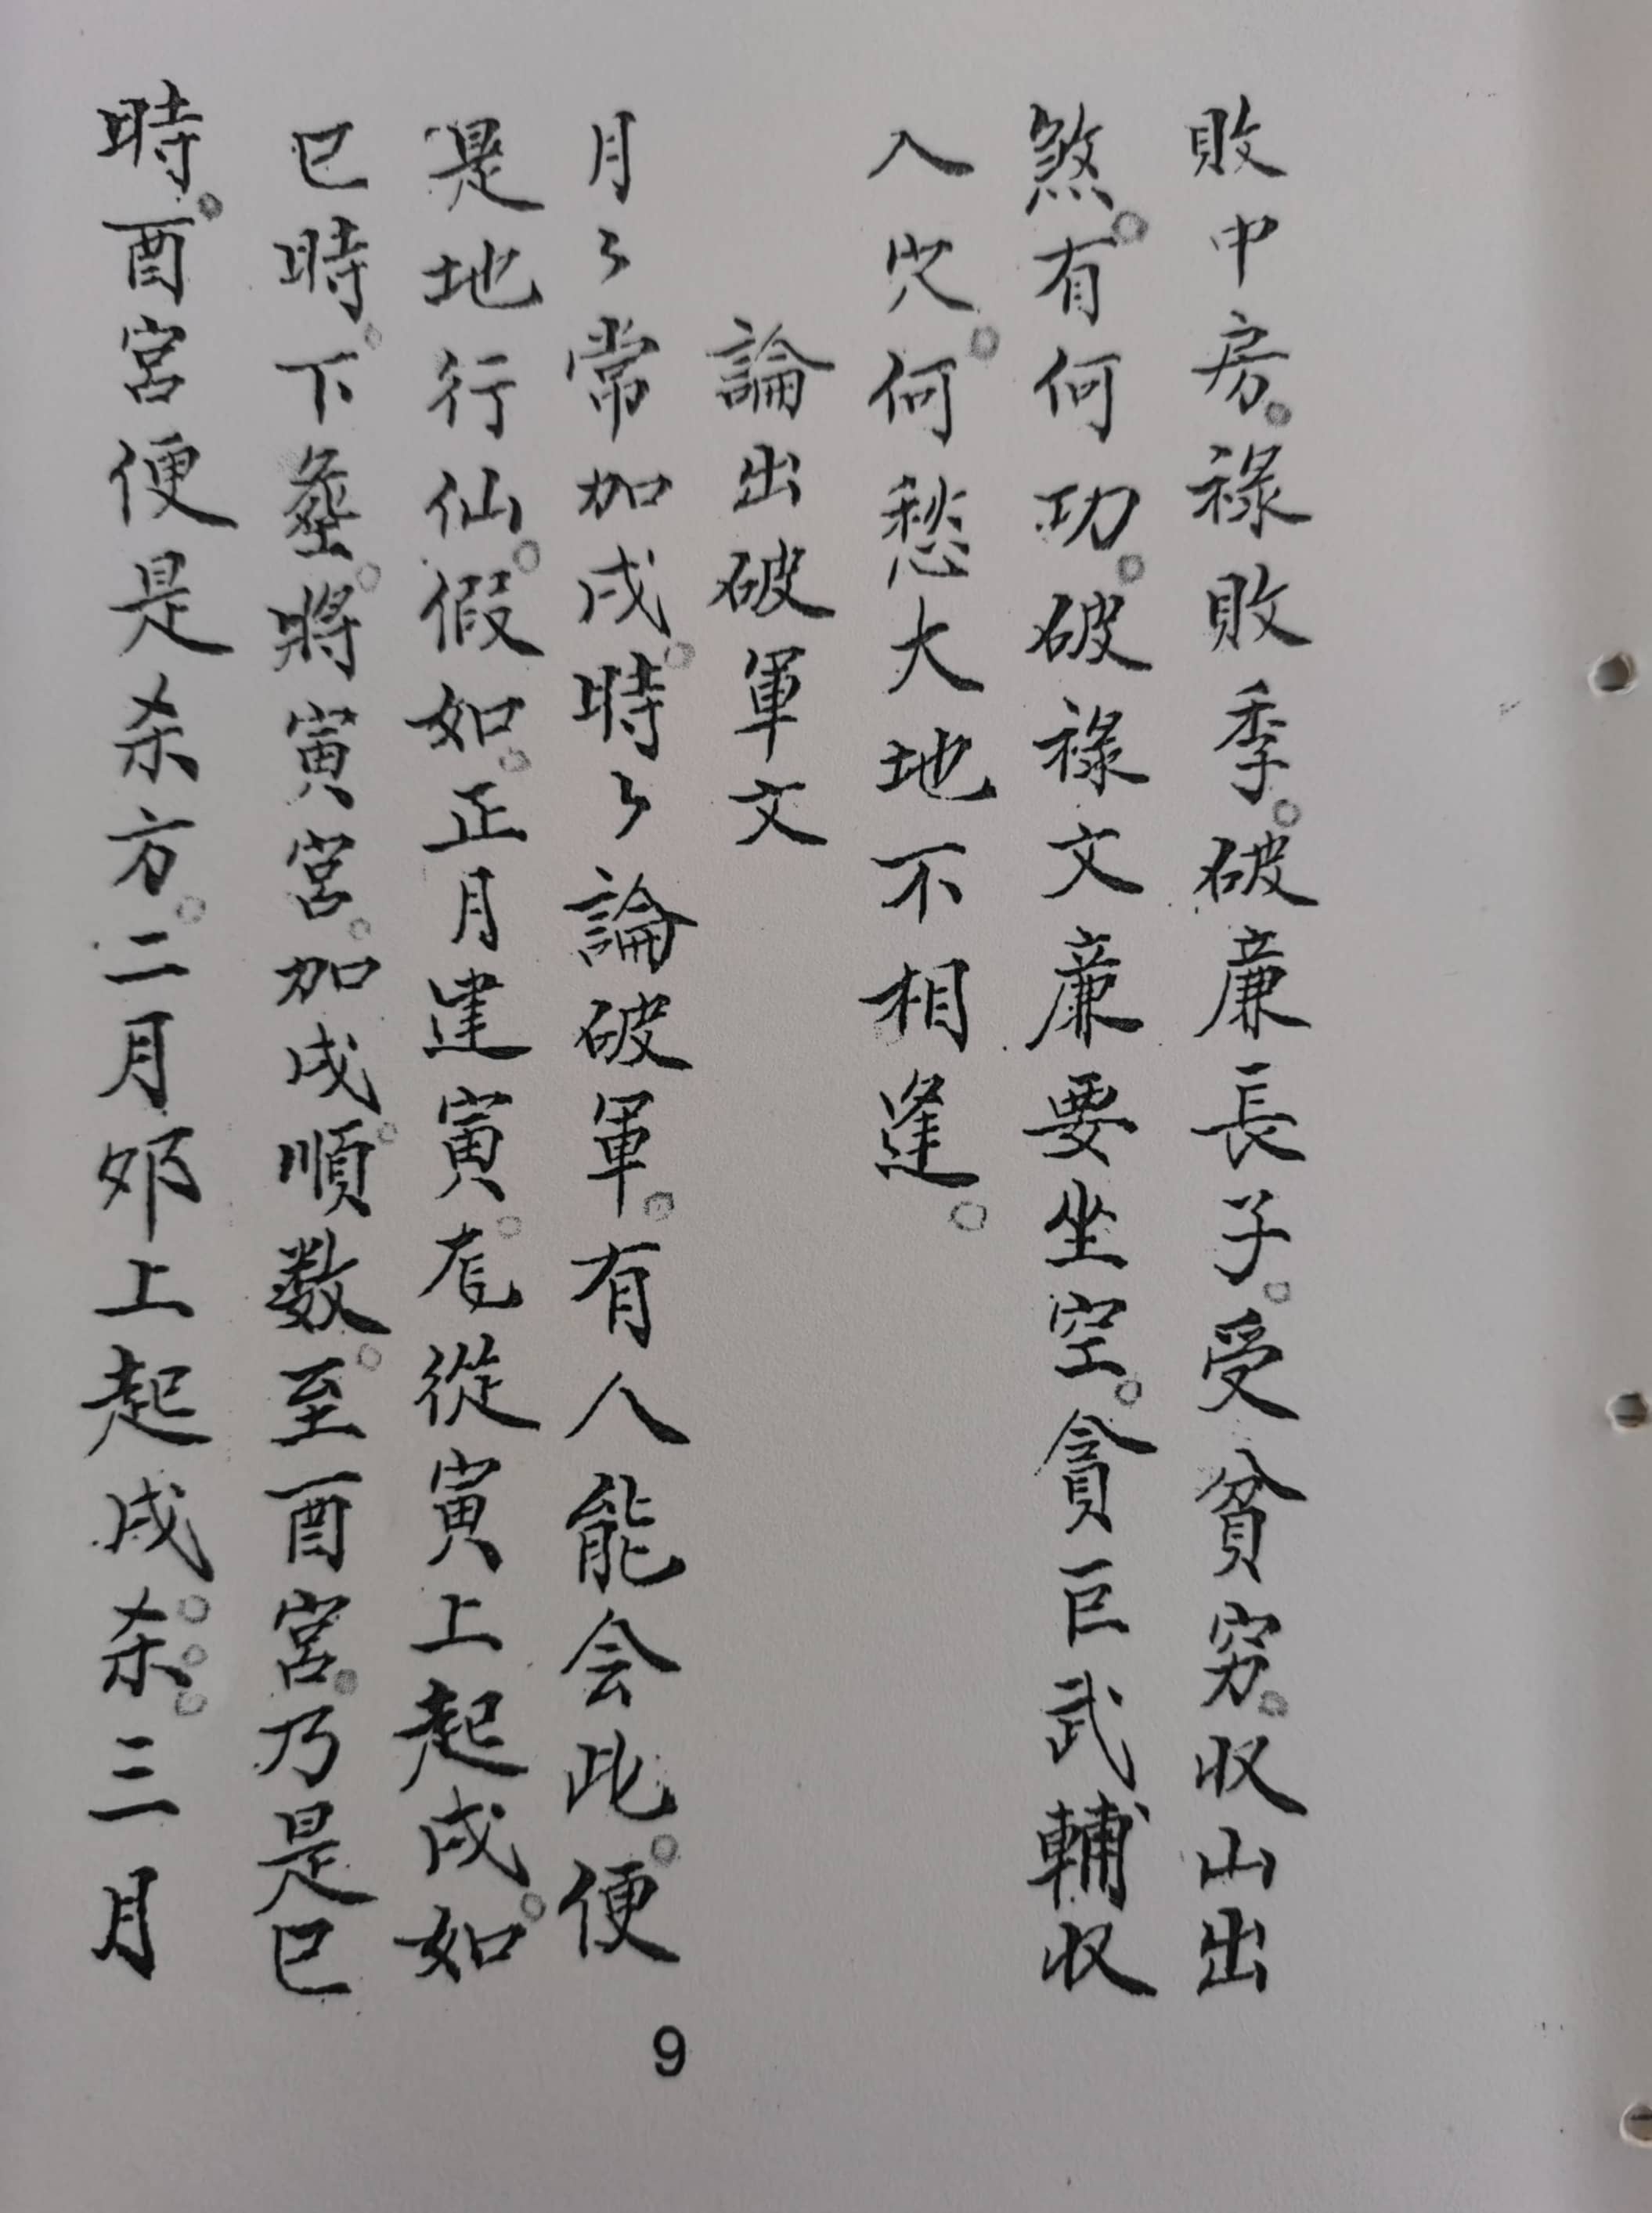 敗中房。祿敗季。破廉長子。受貧穷。収山出
煞。有何功。破祿文廉要坐空。貪巨武輔収
入穴。何愁大地不相逢。
論出破軍文
月々常加戌。時々論破軍。有人能会此。便
是地行仙。假如。正月建寅。從寅上起戌。如
巳時。下。將寅宮。加戌順。数。至酉宮。乃是巳
時。酉宮便是杀方。二月卯上起戌。杀。三月
9